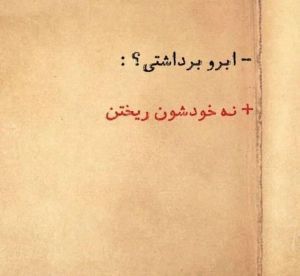 - ابرو برداشتی؟ :
+ نه خودشون ریختن